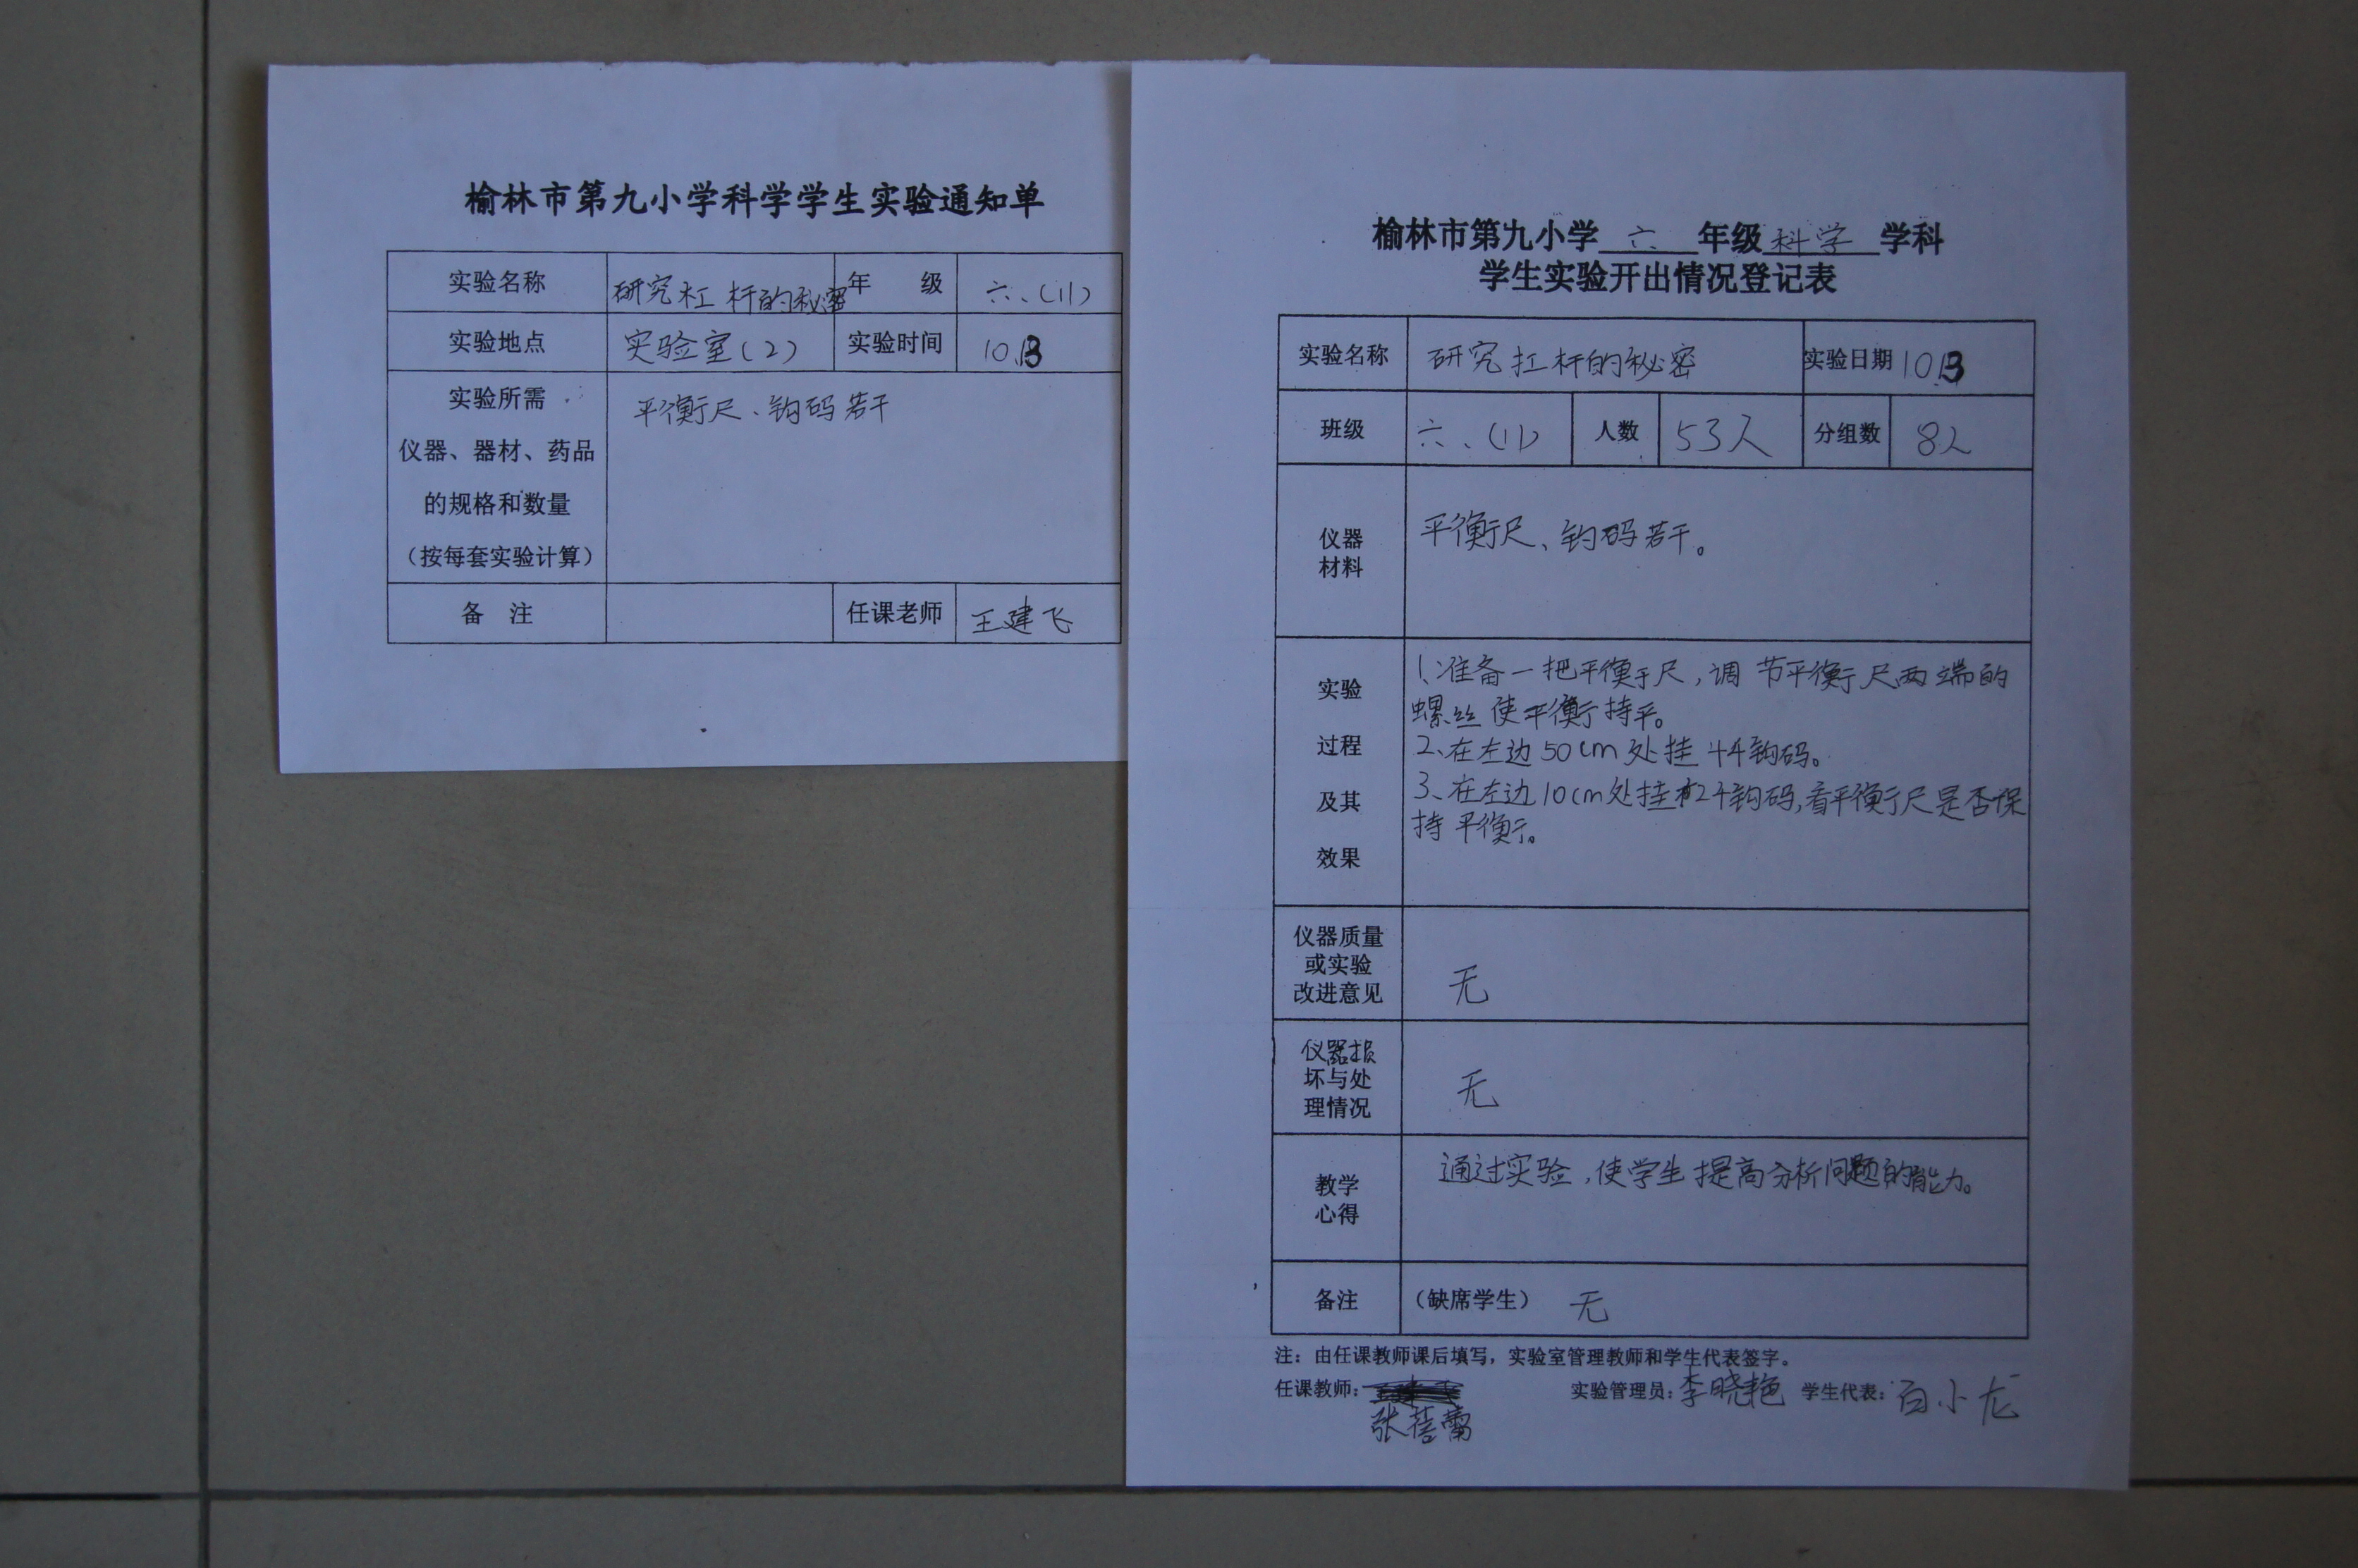 榆林市第九小学科学学生实验通知单
实验名称 研究杠杆的秘密 年 级 六、(11)
实验地点 实验室(2) 实验时间 10.13
实验所需
仪器、器材、药品
的规格和数量
(按每套实验计算)
平衡尺、钩码若干
备 注 任课老师 王建飞
榆林市第九小学 六 年级 科学 学科
学生实验开出情况登记表
实验名称 研究杠杆的秘密 实验日期 10.13
班级 六、(11) 人数 53人 分组数 8人
仪器
材料
平衡尺、钩码若干。
实验
过程
及其
效果
1、准备一把平衡尺,调节平衡尺两端的
螺丝使平衡持平。
2、在左边50cm处挂4个钩码。
3、在左边10cm处挂 2个钩码,看平衡尺是否保
持平衡。
仪器质量
或实验
改进意见
无
仪器损
坏与处
理情况
无
教学
心得
通过实验,使学生提高分析问题的能力。
备注 (缺席学生) 无
注:由任课教师课后填写,实验室管理教师和学生代表签字。
任课教师: 实验管理员:李晓艳 学生代表:白小龙
张蓓蕾